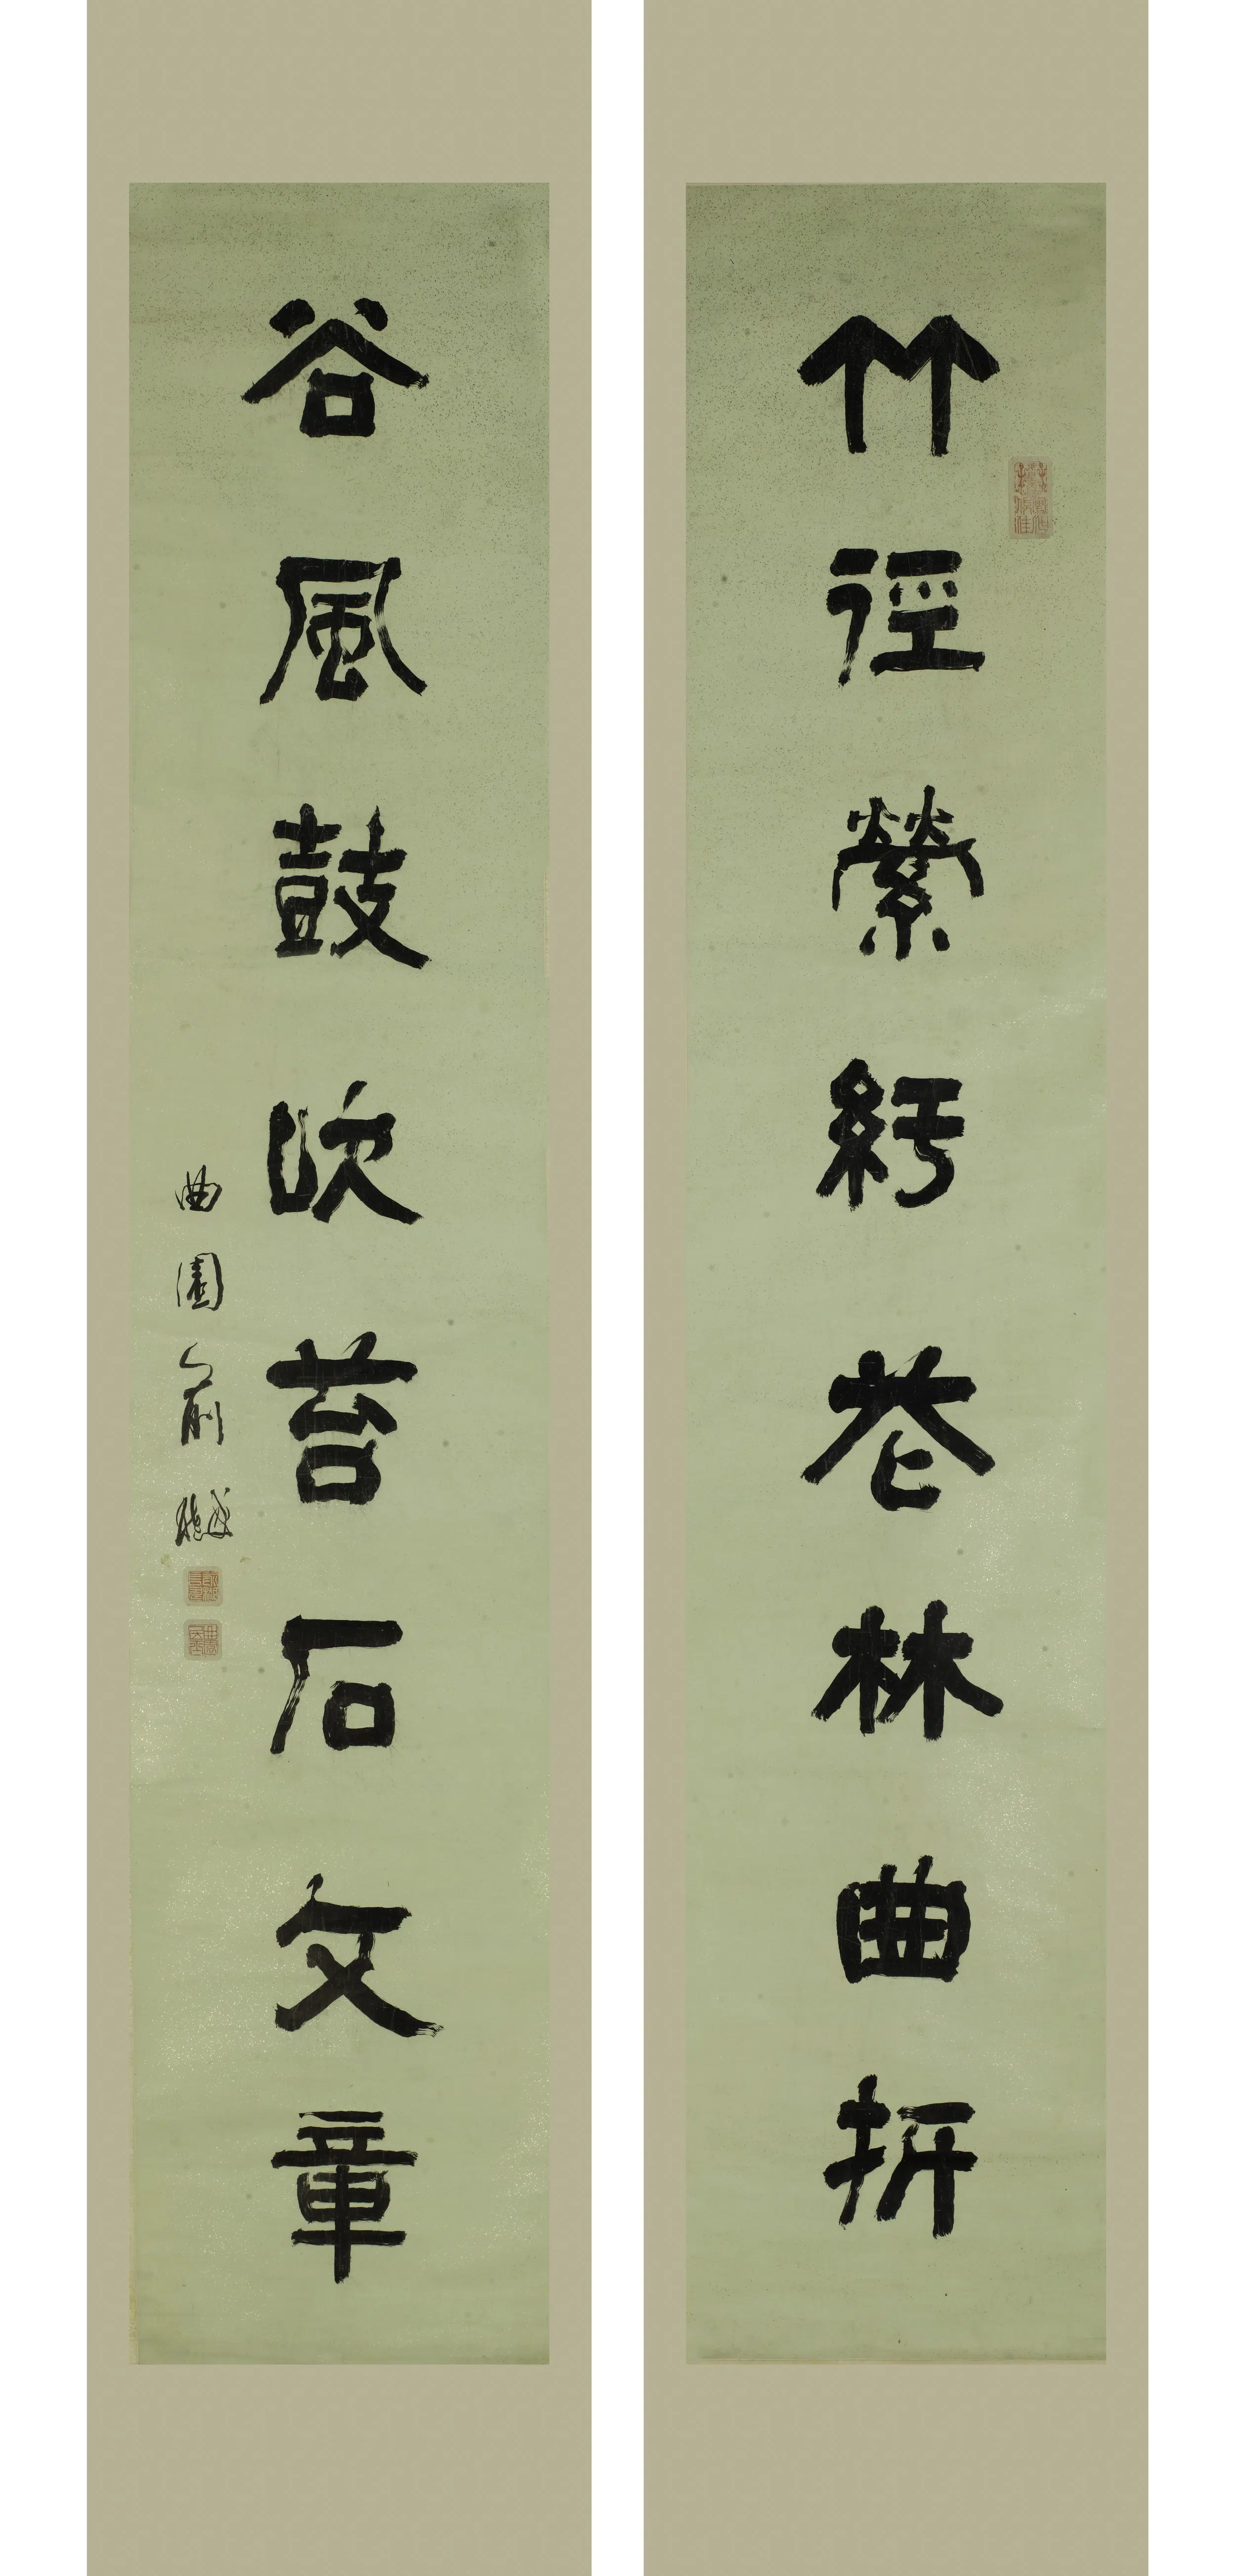 竹徑縈紆巷林曲折
谷風鼓吹苔石文章
曲園俞樾